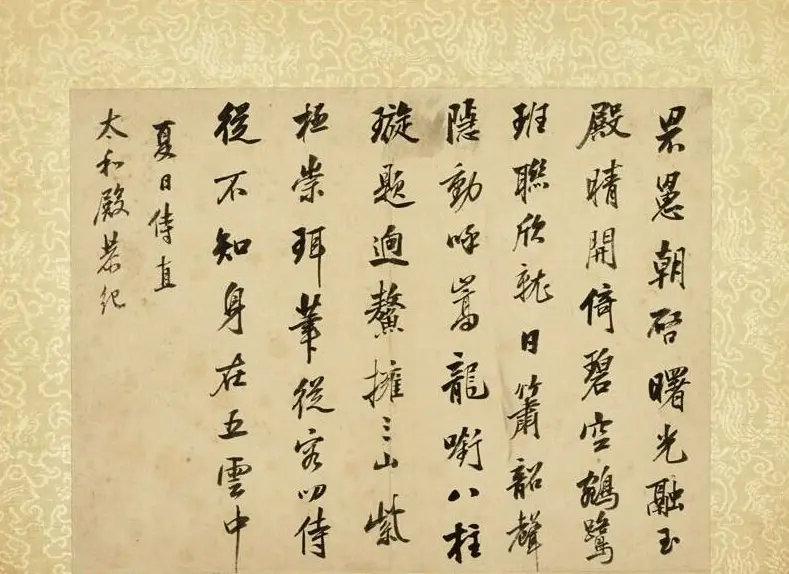 罘罳朝启曙光融玉
殿晴開倚碧空鵷鷺
班聯欣就日簫韶聲
隱動呼嵩龍銜八柱
璇題迥鰲擁三山紫
極崇珥筆從容叨侍
從不知身在五雲中
夏日侍直
太和殿恭紀